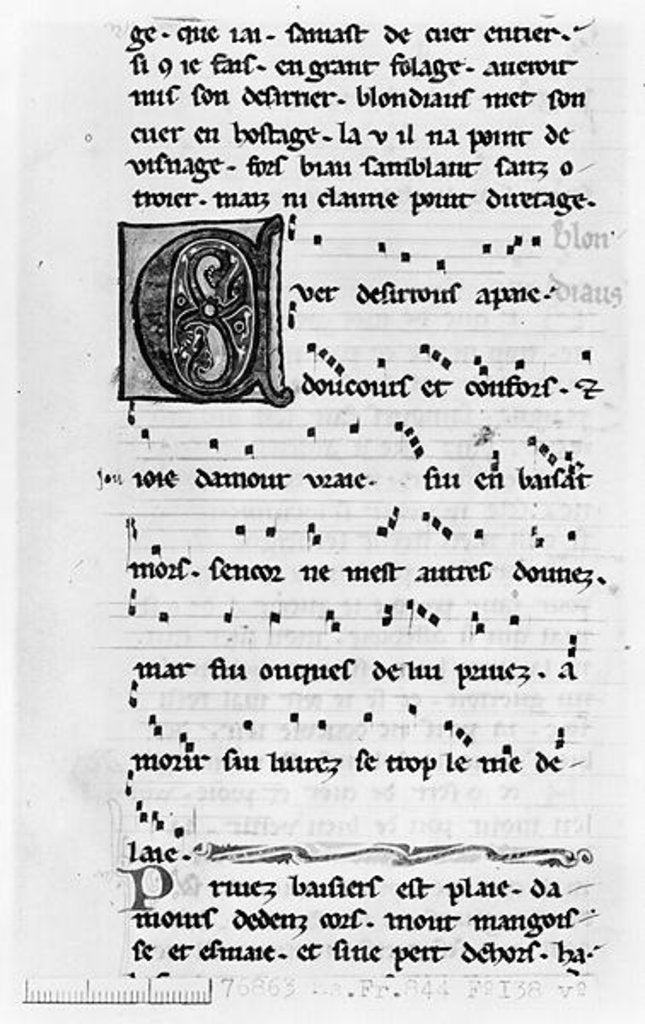 ge. que iai. samast de cuer entier.
si 9 ie fais. en grant folage. aueroit
mis son desirrier. blondiaus met son
cuer en hostage. la v il na point de
visnage. fors biau samblant sanz o
troier. maiz ni claime point duretage.
blon
diaus
Cuer desirrous apaie.
doucours et confors. Z
iou ioie damour vraie. sui en baisat
mors. sencor ne mest autres dounez.
mar fui onques de lui priuez. a
morir sui liurez se trop le me de
laie.
Priuez baisiers est plaie. da
mours dedenz cors. mout mangois
se et esmaie. et sine pert dehors. ha.
76863 Fr. 844 Fº 138 vº